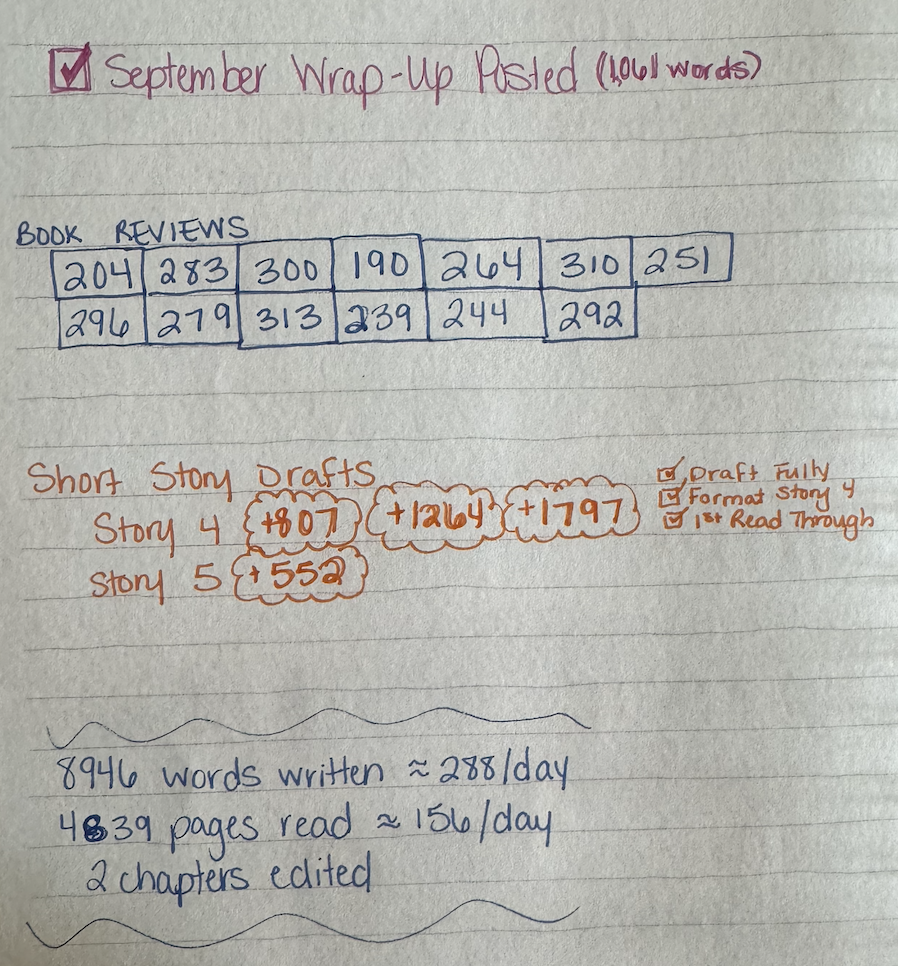 ☑ September Wrap-Up Posted (1,061 words)
BOOK REVIEWS
204 283 300 190 264 310 251
296 279 313 239 244 292
Short Story Drafts
Story 4 +807 +1264 +1797
Story 5 +552
☑ Draft Fully
☑ Format Story 4
☑ 1st Read Through
8946 words written ≈ 288/day
4839 pages read ≈ 156/day
2 chapters edited